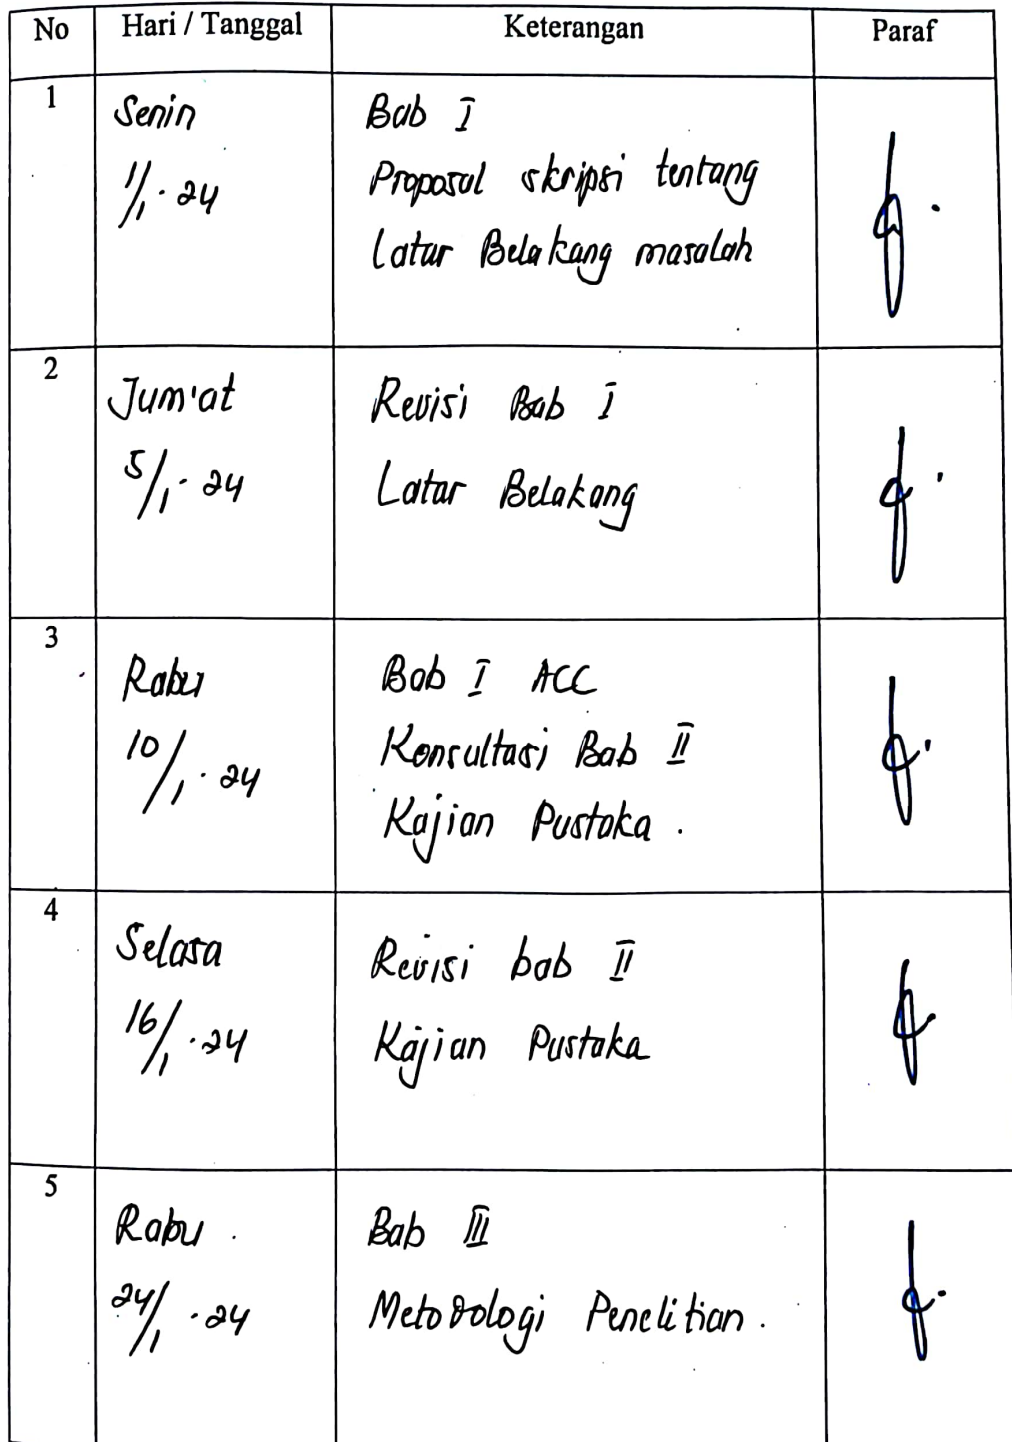 No Hari / Tanggal Keterangan Paraf
1 Senin Bab I
1/1 · 24 Proposal skripsi tentang
Latar Belakang masalah
2 Jum'at Revisi Bab I
5/1 · 24 Latar Belakang
3 Rabu Bab I ACC
10/1 · 24 Konsultasi Bab II
Kajian Pustaka .
4 Selasa Revisi bab II
16/1 · 24 Kajian Pustaka
5 Rabu . Bab III
24/1 · 24 Metodologi Penelitian .